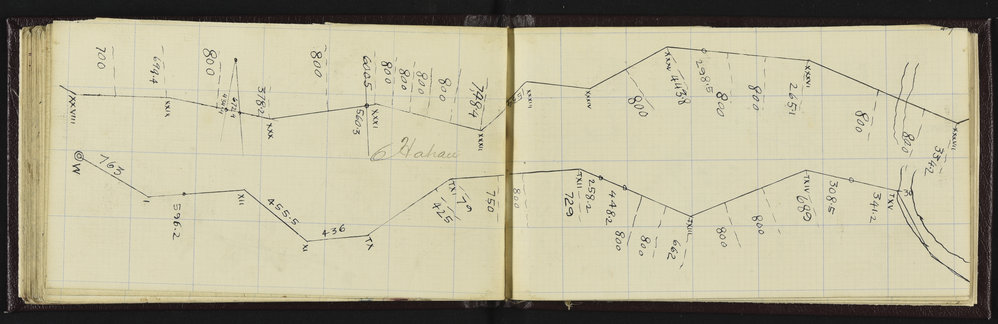 700
694.4
800
378.2
800
600.5
800
800
800
800
798.4
XXVIII
XXIX
XXX
560.3
XXXI
XXXII
XXXIII
XXXIV
800
XXXV
443.8
298.5
800
800
XXXVI
265.1
800
800
XXXVII
354.2
6 Hahau
W
763
I
596.2
XII
455.5
XI
436
TX
TXI
425
79
750
800
TXII
729
258.2
448.2
800
800
662
TXIII
800
800
TXIV
689
308.5
341.2
TXV